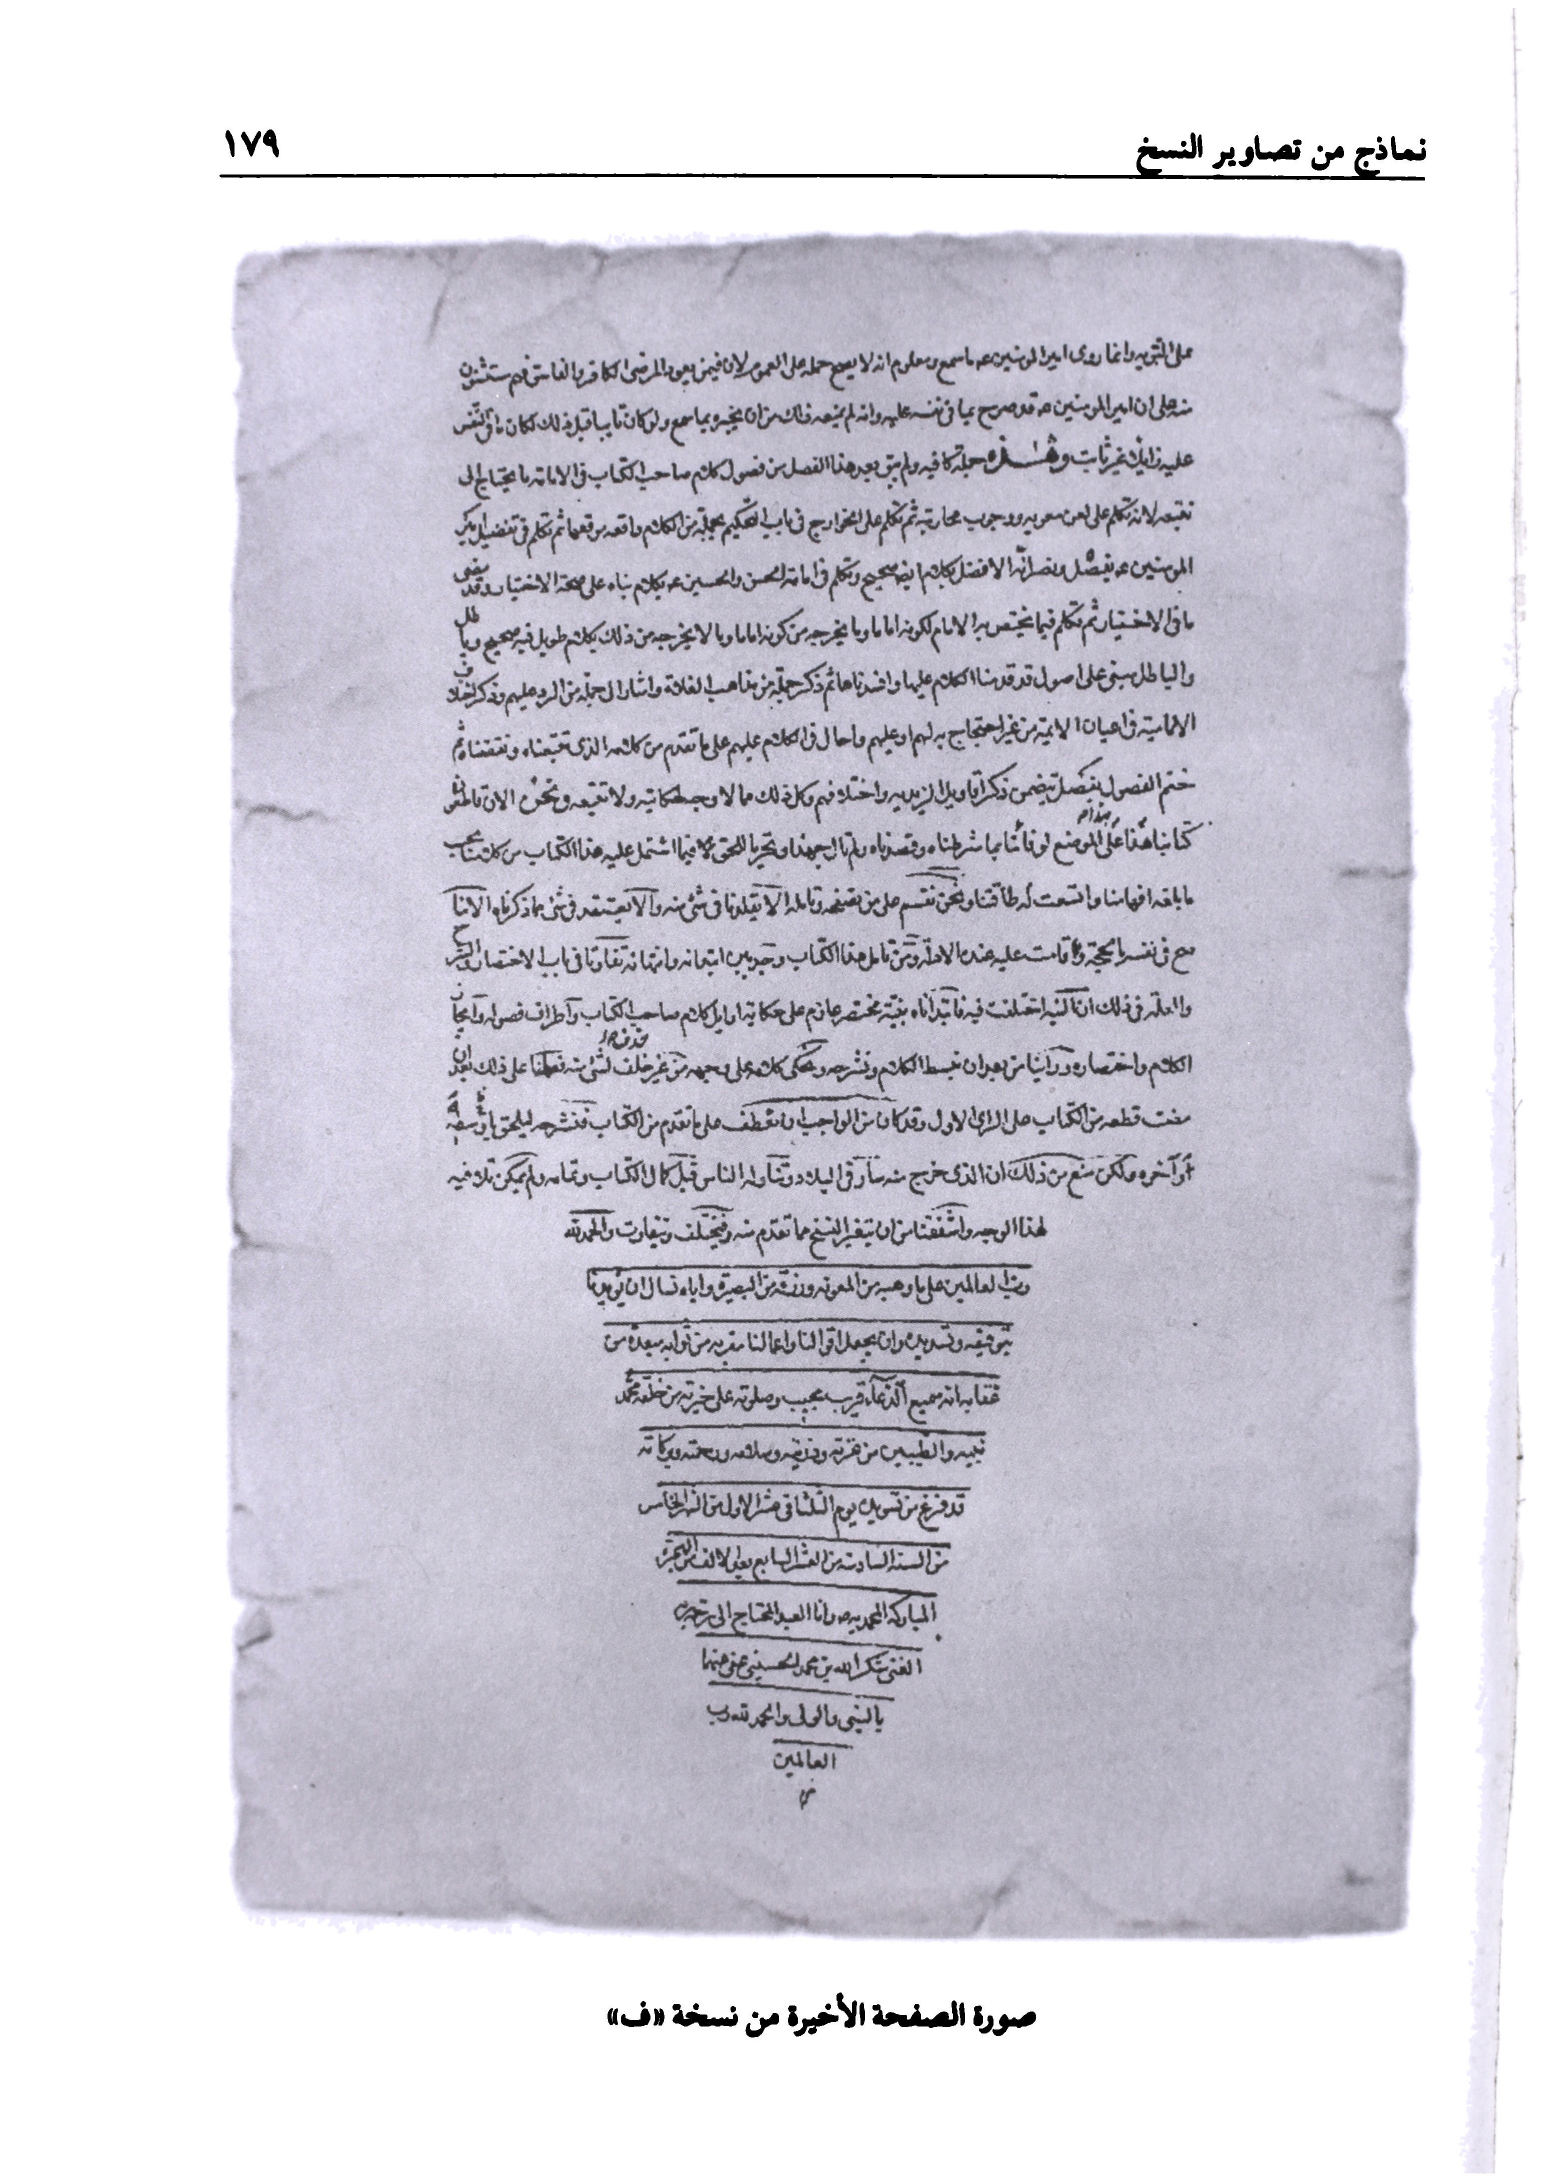 نماذج من تصاوير النسخ
١٧٩
على التوبه وانما روى امير المومنين عه ما سمع ومعلوم انه لا يصح حمله على العموم لان فيمن يعود المرضى الكافر والفاسق فهم مستثنون
منه على ان امير المومنين عه قد صرح بما فى نفسه عليه وانه لم يمنعه ذلك من ان يخبره بما سمع ولو كان تايبا قبل ذلك لكان ما فى النفس
عليه زايلا غير ثابت وهذه جملة كافيه ولم يبق بعد هذا الفصل من فصول كلام صاحب الكتاب فى الامامة ما يحتاج الى
تتبعه لانه تكلم على لعن معويه ووجوب محاربته ثم تكلم على الخوارج فى باب التحكيم بجملة من الكلام واقعه موقعها ثم تكلم فى تفضيل امير
المومنين عه بفصل ونصر انه الافضل بكلام صحيح وتكلم فى امامة الحسن والحسين عه بكلام بناه على صحة الاختيار وقد مضى
ما فى الاختيار ثم تكلم فيما يختص به الامام لكونه اماما وما يخرجه من كونه اماما وما لا يخرجه من ذلك بكلام طويل فيه صحيح وباطل
والباطل مبنى على اصول قد قدمنا الكلام عليها وافسدناها ثم ذكر جملة من مذاهب الغلاة واشار الى جملة من الرد عليهم وذكر اختلاف
الامامية فى اعيان الايمة من غير احتجاج به لهم او عليهم واحال فى الكلام عليهم على ما تقدم من كلامه الذى تتبعناه ونقضناه ثم
ختم الفصول بفصل يتضمن ذكر اقاويل الزيديه واختلافهم وكل ذلك مما لا وجه لحكايته ولا تتبعه ونحن الان قاطعون
كتابنا هذا على الموضع لوفائنا بما شرطناه وقصدناه ولم نال جهدا وتحريا للحق فيما اشتمل عليه هذا الكتاب من كلامنا بحسب
ما بلغه افهامنا واتسعت له طاقتنا ونحن نقسم على من تصفحه وتامله الا يقلدنا فى شئ منه والا يعتقد فى شئ مما ذكرناه الا ما
صح فى نفسه بالحجة وقامت عليه عنده الادلة ومن تامل هذا الكتاب وجد بين ابتدائه وانتهائه تفاوتا فى باب الاختصار والشرح
والعلة فى ذلك ان النية اختلفت فيه فابتداناه بنية مختصر عازم على حكاية اوايل كلام صاحب الكتاب واطراف فصوله وايجاز
الكلام واختصاره وراينا من بعد ان نبسط الكلام ونشرحه ونحكى كلامه على وجهه من غير حذف لشئ منه فعملنا على ذلك بعد ان
مضت قطعه من الكتاب على الراى الاول وقد كان من الواجب ان نعطف على ما تقدم من الكتاب فنشرحه ليلحق باوسطه
او آخره ولكن منع من ذلك ان الذى خرج منه سار فى البلاد وتناوله الناس قبل كمال الكتاب وتمامه ولم يمكن تلافيه
لهذا الوجه واشفقنا من ان يتغير النسخ مما تقدم منه وتختلف وتتفاوت والحمد لله
رب العالمين على ما وهبه من المعونه ورزقه من البصيرة واياه نسال ان يويدنا
بتوفيقه وتسديده وان يجعل اقوالنا واعمالنا مقربه من ثوابه مبعدة من
عقابه انه سميع الدعاء قريب مجيب وصلوته على خيرته من خلقه محمد
نبيه والطيبين من عترته وذريته وسلامه ورحمته وبركاته
قد فرغ من تسويده يوم الثلثا فى عشر الاول من الشهر الخامس
من السنه السادسة من العشر السابع بعد الالف من الهجرة
المباركه المحمديه وانا العبد المحتاج الى رحمة ربه
الغنى شكر الله بن محمد الحسينى عفى عنهما
بالنبى والولى والحمد لله رب
العالمين
صورة الصفحة الأخيرة من نسخة «ف»